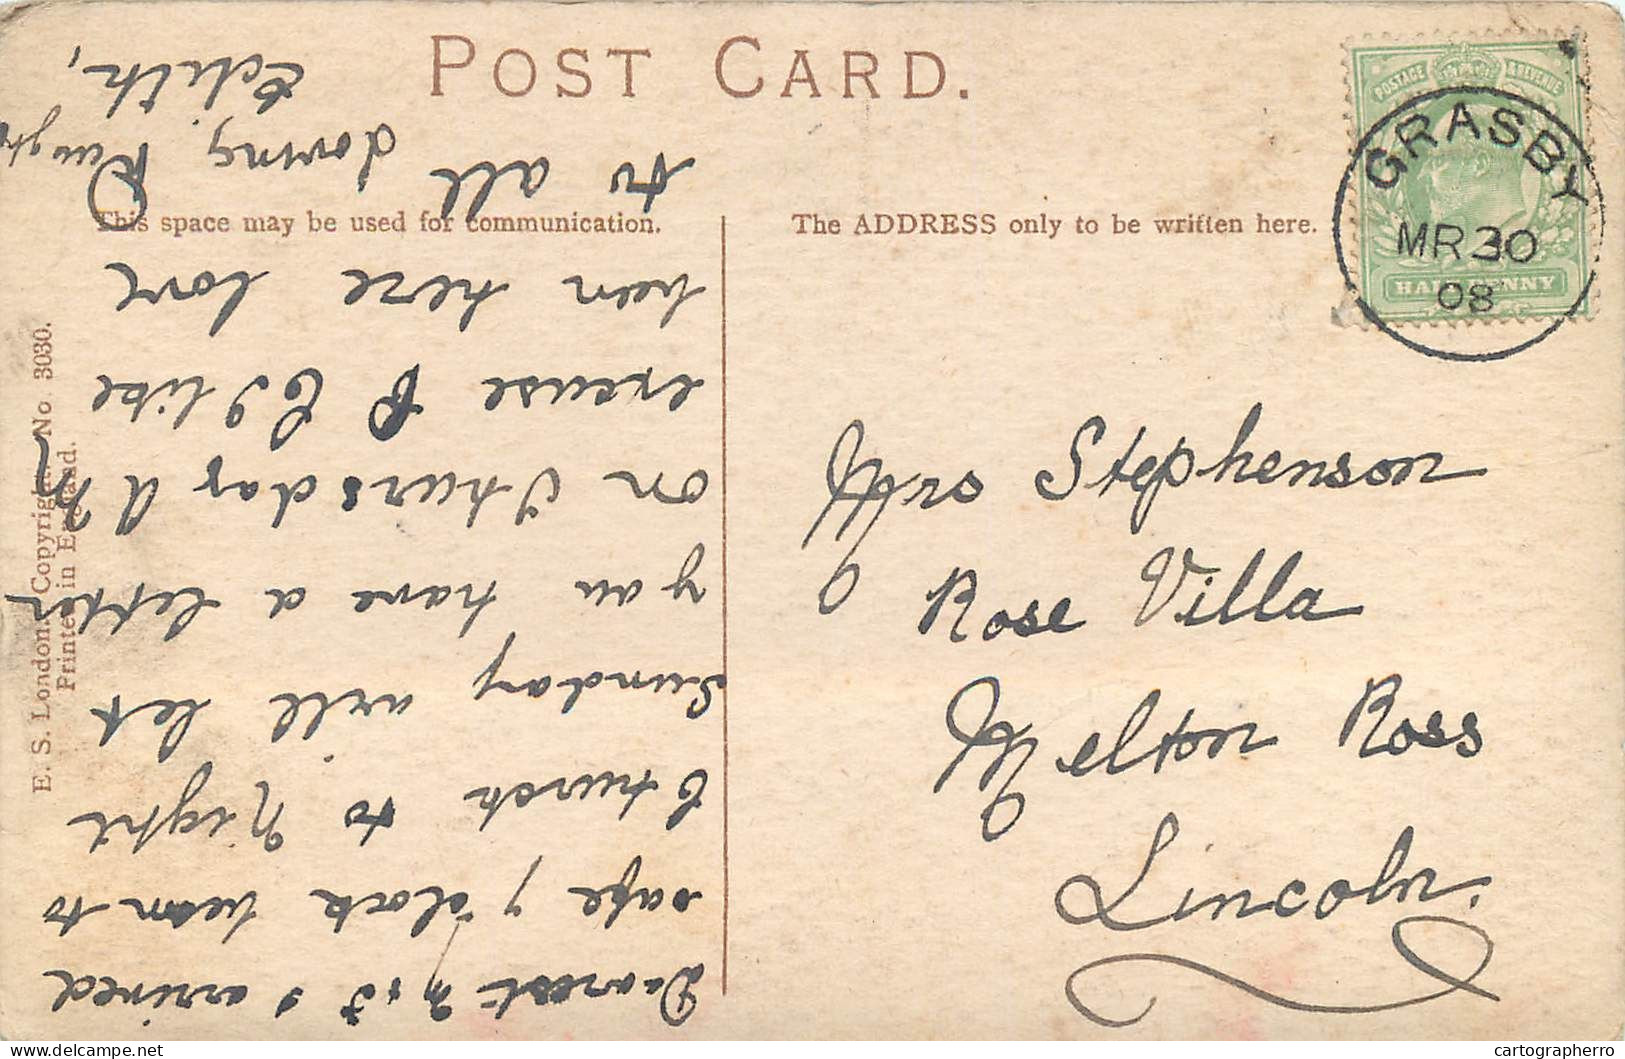 POST CARD.
This space may be used for communication.
The ADDRESS only to be written here.
POSTAGE & REVENUE
HALFPENNY
GRASBY
MR 30
08
Mrs Stephenson
Rose Villa
Melton Ross
Lincoln.
Dearest M & F I arrived
safe 7 o'clock been to
Church to Night
Sunday will let
you have a letter
on Thursday A M
excuse P C I like
been here love
to all loving
Edith,
E. S. London. Copyright. No. 3030.
Printed in England.
cartographerro